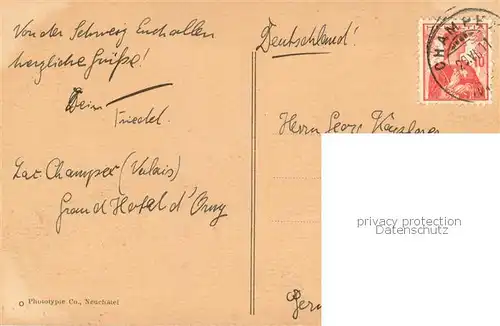 Von der Schweiz Euch allen
herzliche Grüße!
Dein
Friedel.
Lac Champex (Valais)
Grand Hotel d'Orny
Phototypie Co., Neuchâtel
Deutschland!
CHAMPEX
10
Herrn Georg
privacy protection
copyright